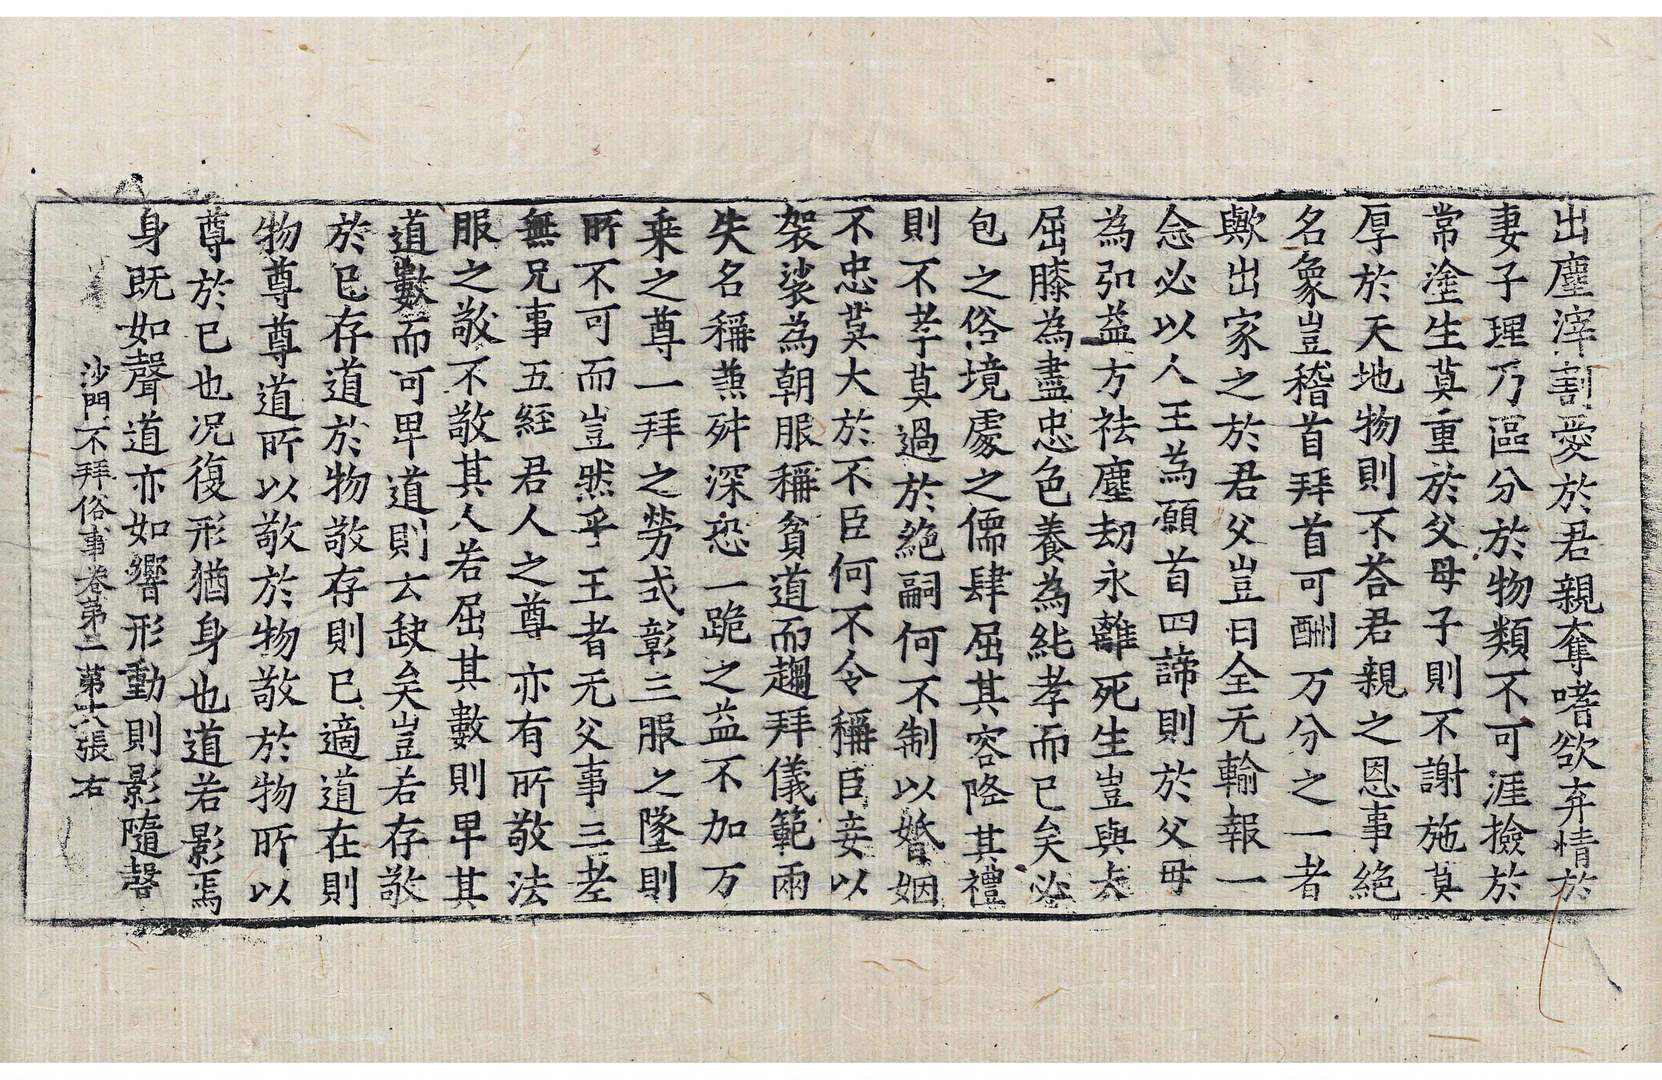 出塵滓割愛於君親奪嗜欲弃情於
妻子理乃區分於物類不可涯撿於
常塗生莫重於父母子則不謝施莫
厚於天地物則不荅君親之恩事絶
名象豈稽首拜首可酬万分之一者
歟出家之於君父豈曰全无輸報一
念必以人王為願首四諦則於父母
為弘益方祛塵劫永離死生豈與夫
屈膝為盡忠色養為純孝而已矣必
包之俗境處之儒肆屈其容降其禮
則不孝莫過於絶嗣何不制以婚姻
不忠莫大於不臣何不令稱臣妾以
袈裟為朝服稱貧道而趨拜儀範兩
失名稱兼舛深恐一跪之益不加万
乗之尊一拜之勞式彰三服之墜則
所不可而豈然乎王者无父事三老
無兄事五經君人之尊亦有所敬法
服之敬不敬其人若屈其數則卑其
道數而可卑道則云缺矣豈若存敬
於已存道於物敬存則已適道在則
物尊尊道所以敬於物敬於物所以
尊於已也况復形猶身也道若影焉
身既如聲道亦如響形動則影隨聲
沙門不拜俗事卷第二 第十六張 右